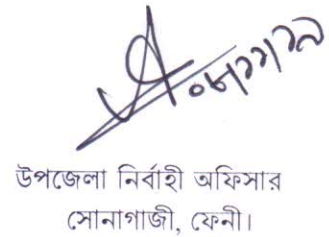 উপজেলা নির্বাহী অফিসার
সোনাগাজী, ফেনী।